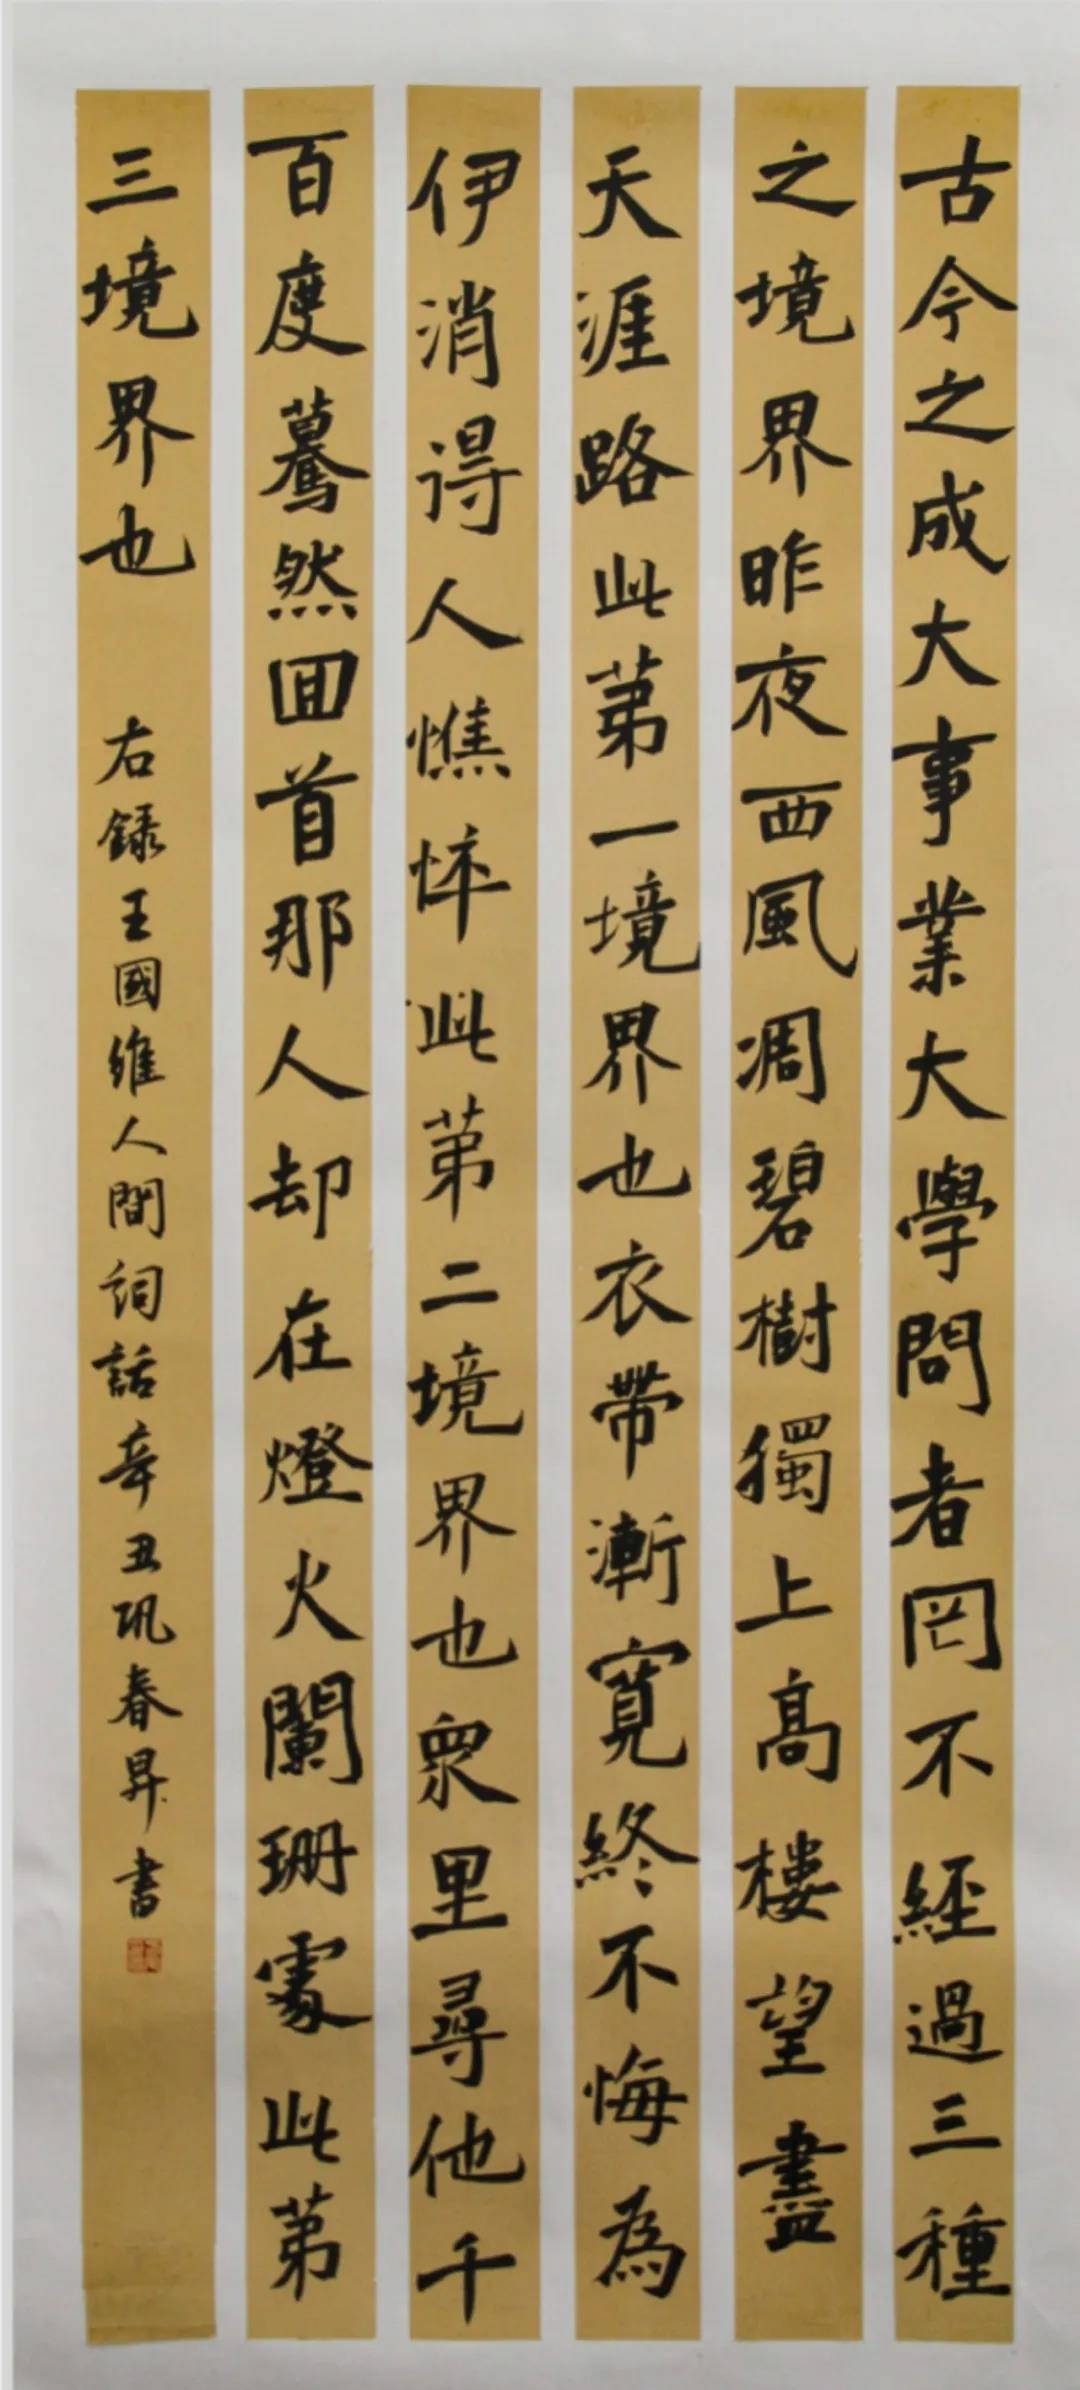 古今之成大事業大學問者罔不經過三種
之境界昨夜西風凋碧樹獨上高樓望盡
天涯路此第一境界也衣帶漸寬終不悔為
伊消得人憔悴此第二境界也眾里尋他千
百度驀然回首那人却在燈火闌珊處此第
三境界也 右錄王國維人間詞話辛丑巩春昇書